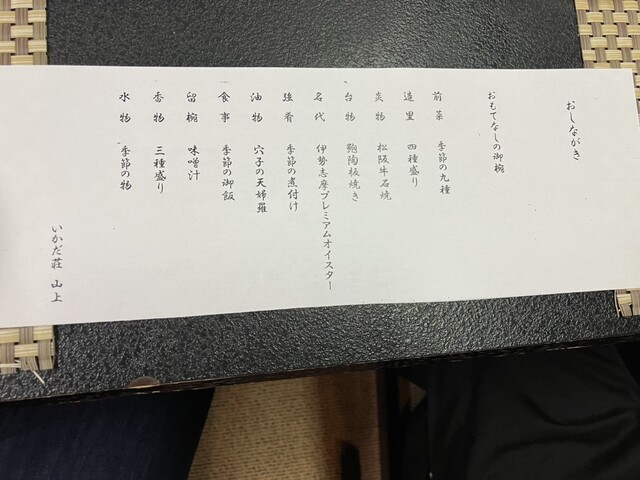 おしながき
おもてなしの御椀
前菜 季節の九種
造里 四種盛り
炎物 松阪牛石焼
台物 鮑陶板焼き
名代 伊勢志摩プレミアムオイスター
強肴 季節の煮付け
油物 穴子の天婦羅
食事 季節の御飯
留椀 味噌汁
香物 三種盛り
水物 季節の物
いかだ荘 山上